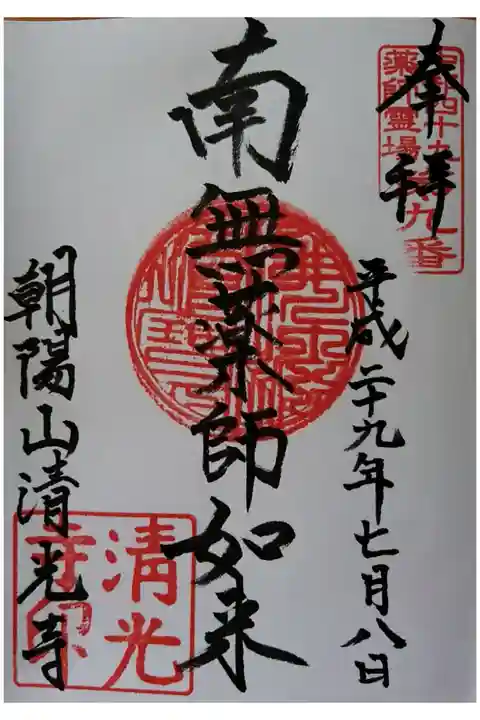 奉拝
薬師霊場 第九番
平成二十九年七月八日
南無薬師如来
朝陽山清光寺
清光
寺印